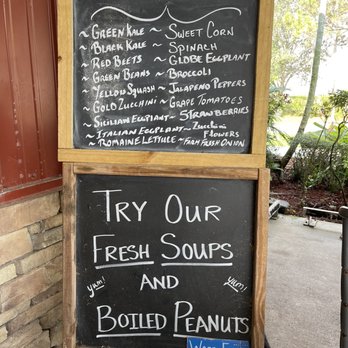 ~Green Kale ~ Sweet Corn
~Black Kale ~ Spinach
~Red Beets ~Globe Eggplant
~Green Beans ~ Broccoli
~Yellow Squash ~Jalapeno Peppers
~Gold Zucchini ~Grape Tomatoes
~Sicilian Eggplant ~Strawberries
~Italian Eggplant ~ Zucchini Flowers
~Romaine Lettuce ~Farm Fresh Onion
Try Our
Fresh Soups
yum! and yum!
Boiled Peanuts